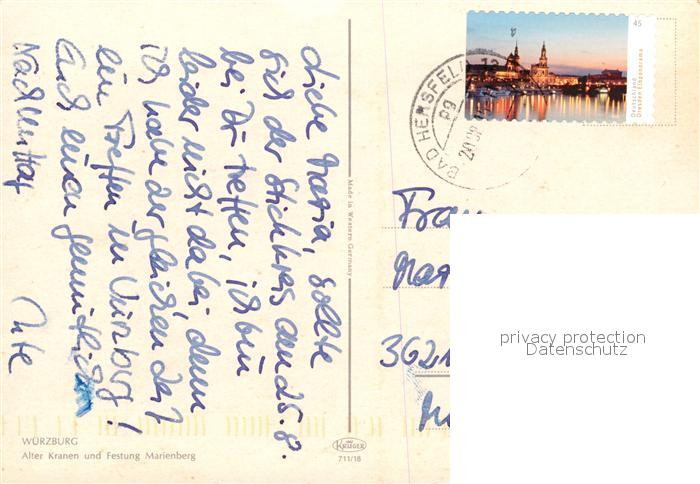 Liebe Maria, sollte
sich der Stichkreis am 25. 8.
bei Dir treffen, ich bin
leider nicht dabei, denn
ich habe der gleichen Zeit
ein Treffen in Würzburg!
Euch einen gemütlichen
Nachmittag
Ute
WÜRZBURG
Alter Kranen und Festung Marienberg
Made in Western Germany
KRÜGER
711/18
45
Deutschland
Dresden Elbpanorama
BAD HERSFELD
13
pg
Frau
Mar
3621
privacy protection
Datenschutz